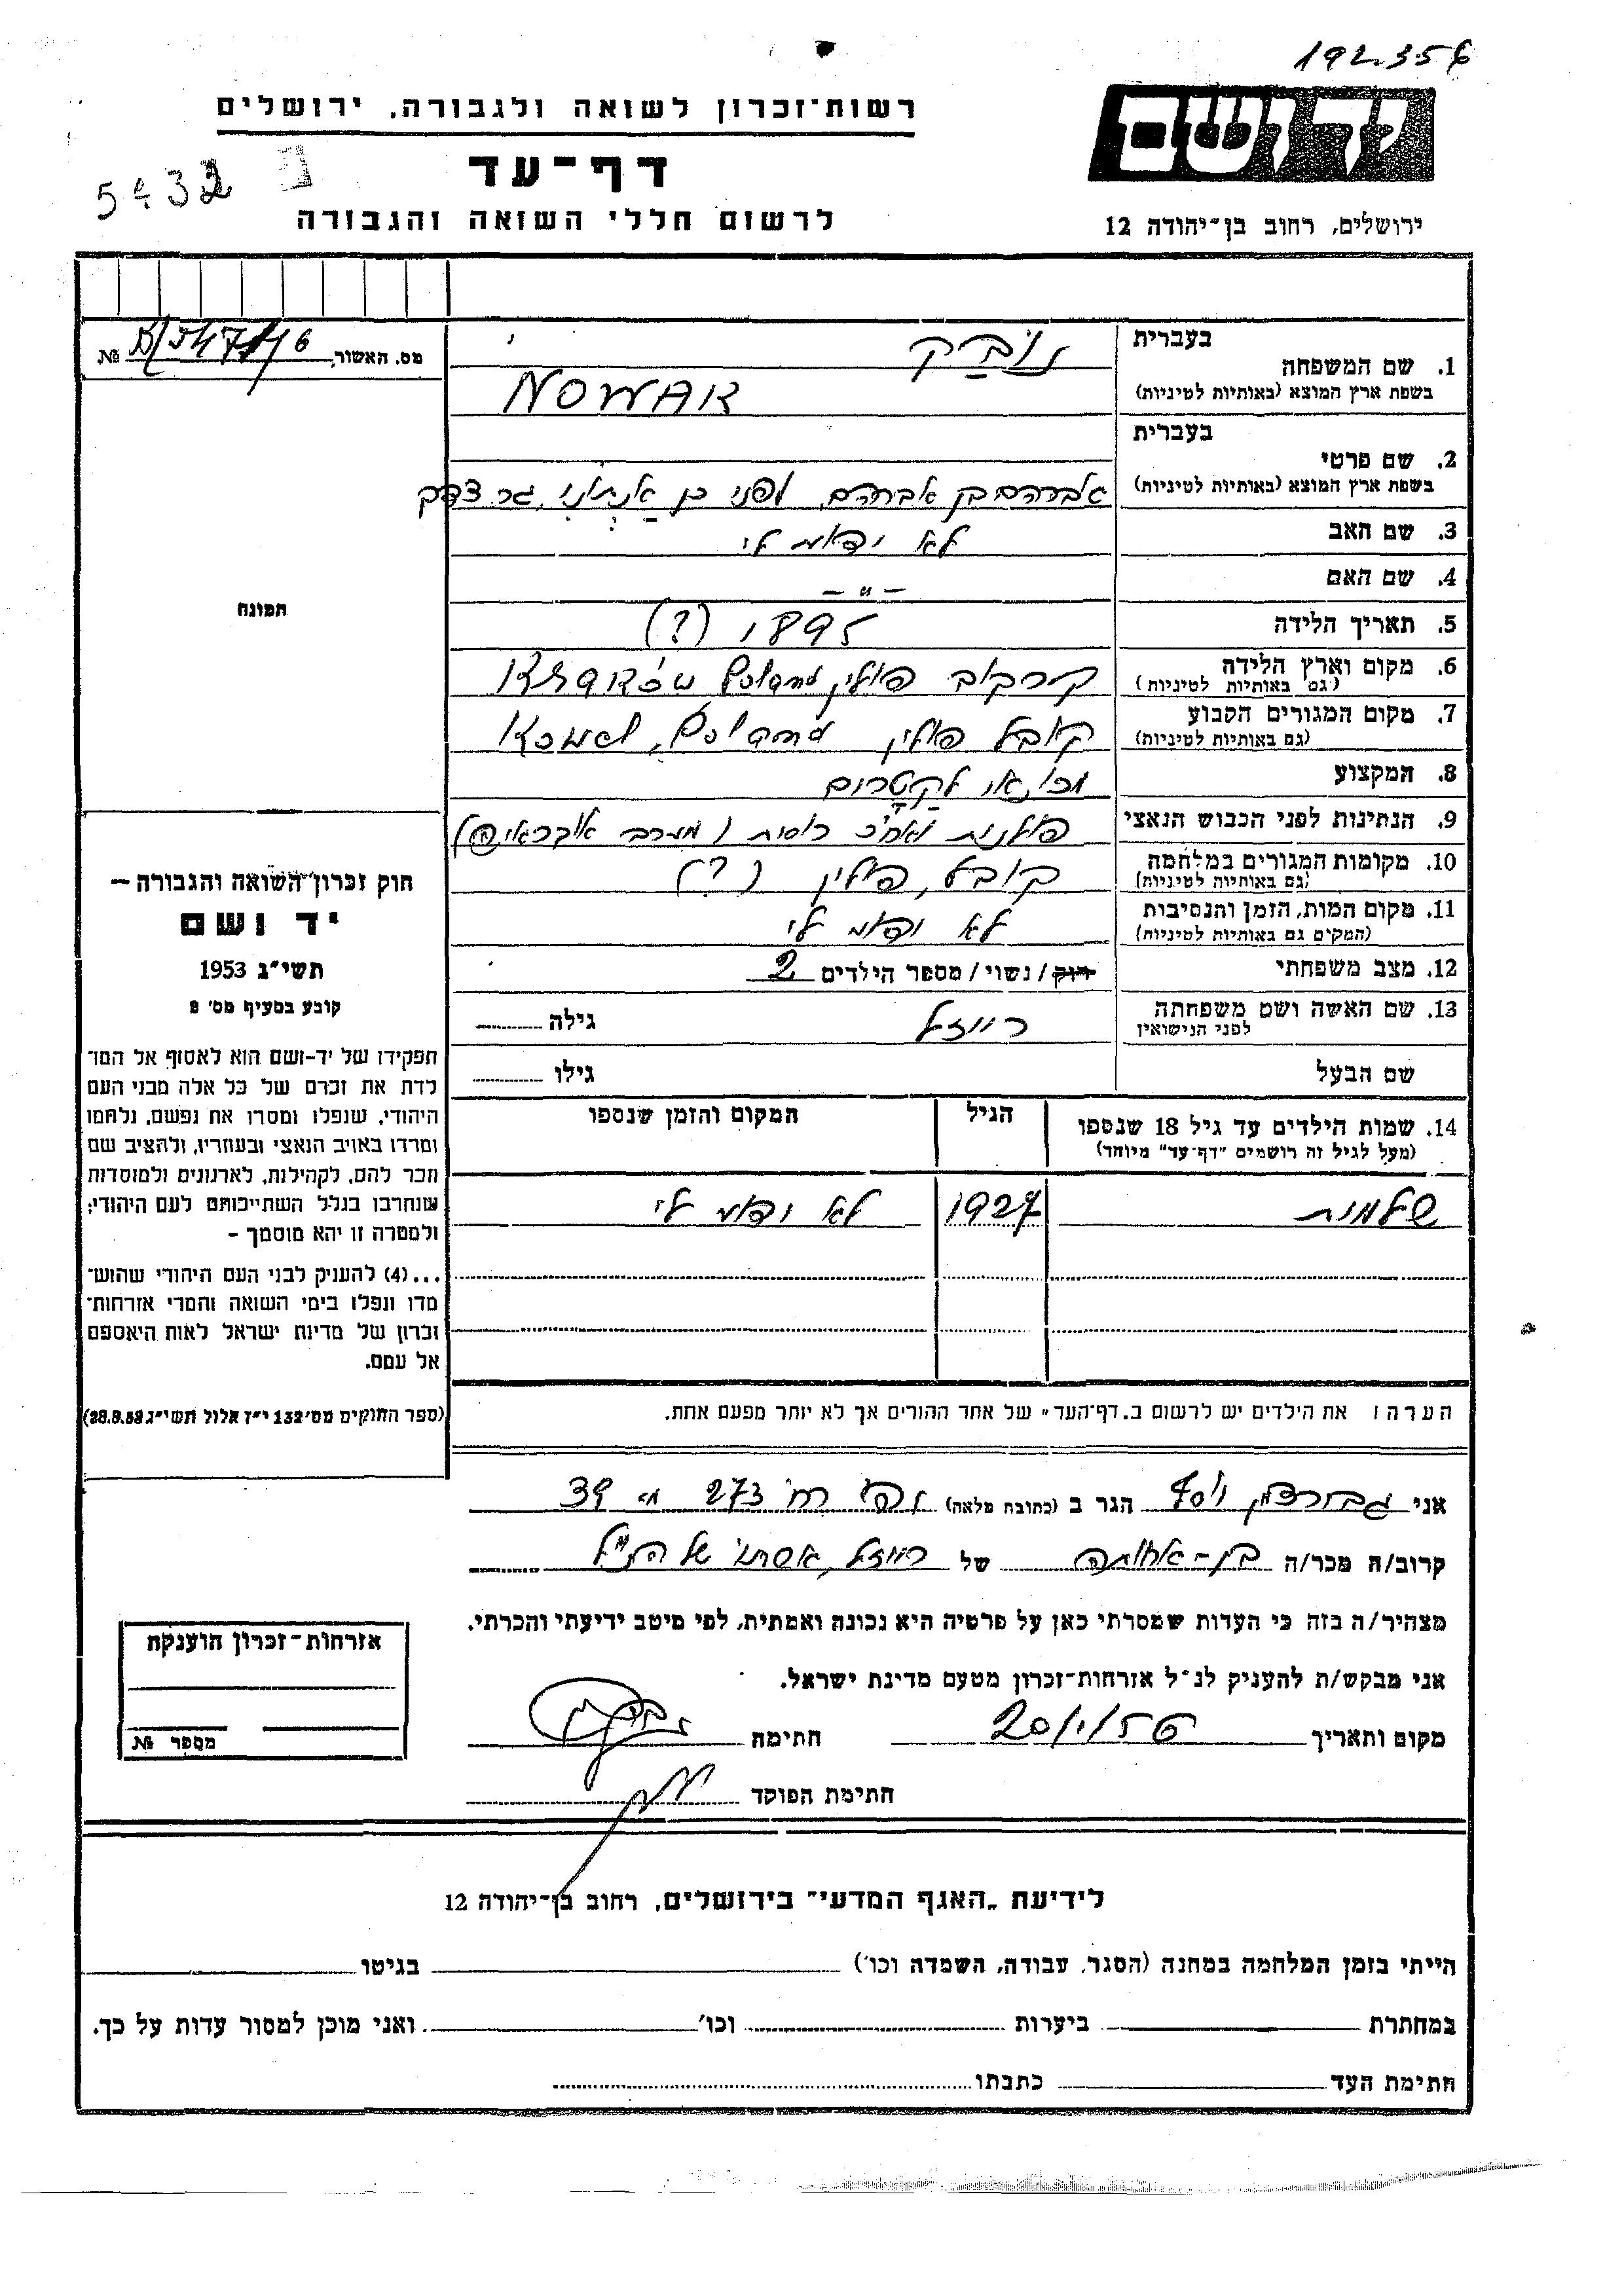 192356
יד ושם
רשות-זכרון לשואה ולגבורה, ירושלים
דף-עד
לרשום חללי השואה והגבורה
ירושלים, רחוב בן-יהודה 12
מס. האשור №
1. שם המשפחה
בעברית נוֹבַק
בשפת ארץ המוצא (באותיות לטיניות) NOWAK
2. שם פרטי
בעברית
בשפת ארץ המוצא (באותיות לטיניות) אברהם בן אברהם, לפני כן אַנְתוֹנִי, גר צדק
3. שם האב לא ידוע לי
4. שם האם – " –
5. תאריך הלידה 1895 (?)
6. מקום וארץ הלידה
(גם באותיות לטיניות) קרקוב פולין Poland
7. מקום המגורים הקבוע
(גם באותיות לטיניות) קובל פולין Kowel, Poland
8. המקצוע מכונאי לקטרים
9. הנתינות לפני הכבוש הנאצי פולנית ואח"כ רוסית (מערב אוקראינה)
10. מקומות המגורים במלחמה
(גם באותיות לטיניות) קובל, פולין (?)
11. מקום המות, הזמן והנסיבות
(המקים גם באותיות לטיניות) לא ידוע לי
12. מצב משפחתי רוק/נשוי/מספר הילדים 2
13. שם האשה ושם משפחתה
לפני הנישואין רייזל גילה
שם הבעל גילו
14. שמות הילדים עד גיל 18 שנספו
(מעל לגיל זה רושמים "דף-עד" מיוחד)
הגיל
המקום והזמן שנספו
שלמית 1927 לא ידוע לי
הערה: את הילדים יש לרשום ב„דף-העד" של אחד ההורים אך לא יותר מפעם אחת.
תמונה
חוק זכרון השואה והגבורה —
יד ושם
תשי"ג 1953
קובע בסעיף מס' 2
תפקידו של יד-ושם הוא לאסוף אל המו-
לדת את זכרם של כל אלה מבני העם
היהודי, שנפלו ומסרו את נפשם, נלחמו
ומרדו באויב הנאצי ובעוזריו, ולהציב שם
וזכר להם, לקהילות, לארגונים ולמוסדות
שנחרבו בגלל השתייכותם לעם היהודי;
ולמטרה זו יהא מוסמך –
...(4) להעניק לבני העם היהודי שהוש-
מדו ונפלו בימי השואה והמרי אזרחות-
זכרון של מדינת ישראל לאות היאספם
אל עמם.
(ספר החוקים מס' 132 י"ז אלול תשי"ג 28.8.53)
אני יוסף הגר ב (כתובת מלאה) רח' 273 מ' 39
קרוב/ה מכר/ה בן-אחותה של רייזל, אשתו של הנ"ל
מצהיר/ה בזה כי העדות שמסרתי כאן על פרטיה היא נכונה ואמתית, לפי מיטב ידיעתי והכרתי.
אני מבקש/ת להעניק לנ"ל אזרחות-זכרון מטעם מדינת ישראל.
מקום ותאריך 20/1/56 חתימה
חתימת הפוקד
אזרחות-זכרון הוענקה
מספר №
לידיעת „האגף המדעי" בירושלים, רחוב בן-יהודה 12
הייתי בזמן המלחמה במחנה (הסגר, עבודה, השמדה וכו') בגיטו
במחתרת ביערות וכו' ואני מוכן למסור עדות על כך.
חתימת העד כתבתו